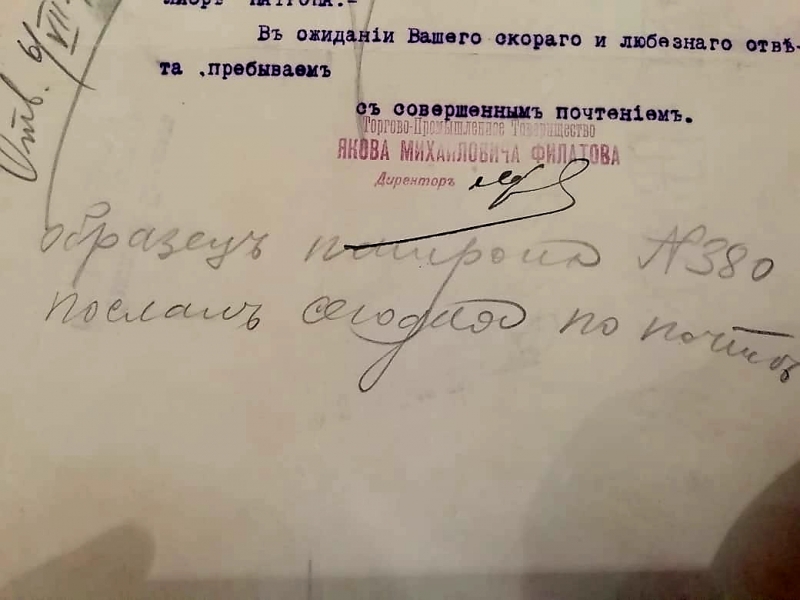 Отв. 6/VII
ПАТРОНА.-
Въ ожиданіи Вашего скораго и любезнаго отвѣ-
та ,пребываемъ
съ совершеннымъ почтеніемъ.
Торгово-Промышленное Товарищество
ЯКОВА МИХАЙЛОВИЧА ФИЛАТОВА
Директоръ
образецъ патрона №380
посланъ сегодня по почтѣ